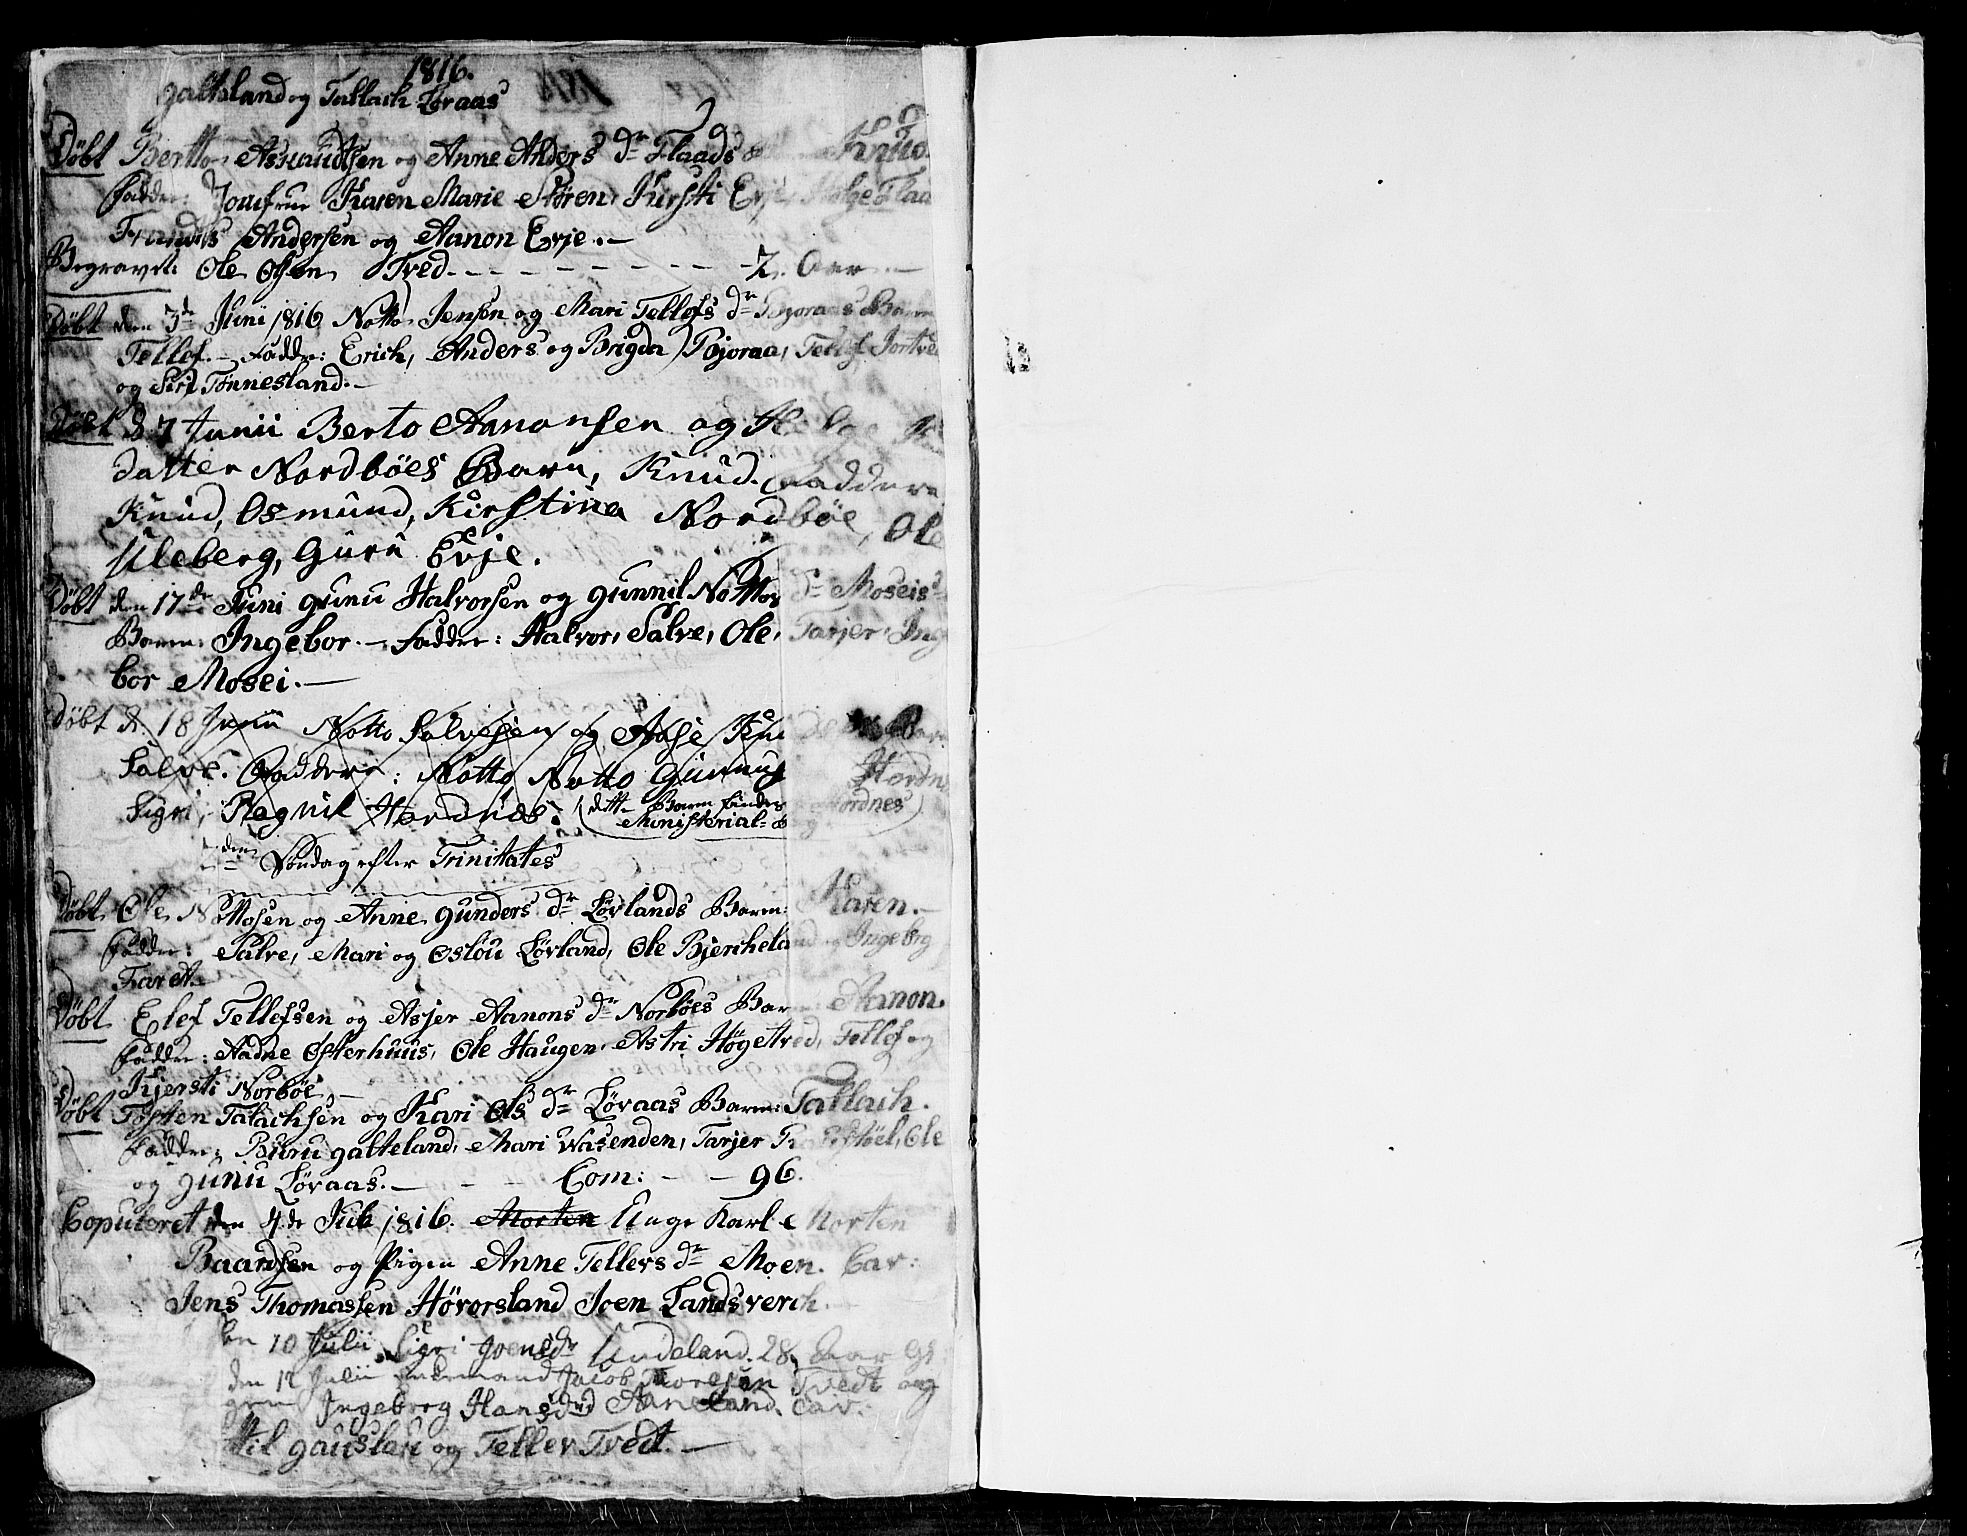 1816.
Galteland og Tallach Løraas
Døbt Bertto Asmundsen og Anne Anders dr Flaads Knud.
Fadder: Jomfrue Karen Marie Støren, Kirsti Evje, Helge Flaa
Frands Andersen og Aanon Evje.—
Begravet: Ole Olsen Tved - - - - - - - - - 7. Aar.—
Døbt den 3de Juni 1816 Notto Jensen og Mari Tellefs dr Bjoraas Barn
Tellef.— Fadder: Erich, Anders og Brigda Bjoraa, Tellef Jortve
og Siri Tønnesland.—
Døbt d. 7 Junii Berto Aanonsen og Helge
datter Nordbøes Barn, Knud. Faddere
Knud, Osmund, Kirstina Nordbøe, Ole
Uleberg, Guru Evje.
Døbt den 17de Juni Gunu Halvorsen og Gunnil Nottos dr Moseis
Barn: Ingebor.— Fadder: Halvor, Salve, Ole, Tarjer, Inge
bor Mosei.—
Døbt d. 18 Junii Notto Salvesen og Aase
Salve. Faddere: Notto Notto Gunnu Hordn
Sigri, Ragnil Hordnes. (dette Barn findes Hordnes
Ministerial-
den Søndag efter Trinitates
Døbt Ole Nottosen og Anne Gunders dr Lørlands Barn: Karen.—
Fadder: Salve, Mari og Oslou Lørland, Ole Bjerchela og Ingeborg
Faret.
Døbt Elef Tellefsen og Asjer Aanons dr Norbøes Barn Aanon.
Fadder: Aadne Osterhuus, Ole Haugen, Astri Högetved, Tellef og
Kjersti Norbøe.—
Døbt Tosten Talachsen og Kari Ols dr Løraas Barn: Tallach.
Fadder: Buru Galteland, Mari Wasenden, Tarjer Ole
og Gunu Løraas.— - - - Com: - - 96.
Coputeret den 4de Juli 1816. Morten Unge Karl Morten
Baardsen og Pigen Anne Tellefs dr Moen. Cav:
Jens Thomassen Hövorsland Joen Landsverch.
den 10 Julii Sigri Joensdr Undeland. 28 Aar
den 12 Julii Jacob Tvedt og
Ingeborg Hansdr Aaneland. Cav:
til Gauslau og Tellev Tvedt.—